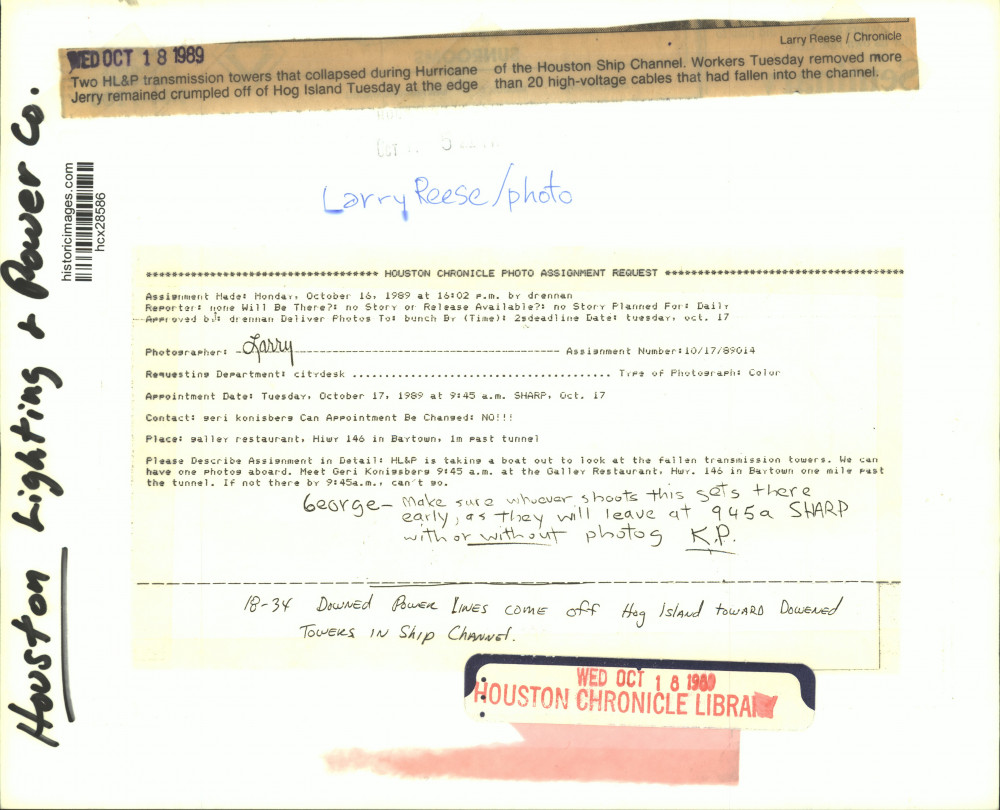 WED OCT 18 1989
Larry Reese / Chronicle
Two HL&P transmission towers that collapsed during Hurricane
Jerry remained crumpled off of Hog Island Tuesday at the edge
of the Houston Ship Channel. Workers Tuesday removed more
than 20 high-voltage cables that had fallen into the channel.
Houston Lighting & Power Co.
historicimages.com
hcx28586
Larry Reese/photo
************************************ HOUSTON CHRONICLE PHOTO ASSIGNMENT REQUEST *************************************
Assignment Made: Monday, October 16, 1989 at 16:02 p.m. by drennan
Reporter: none Will Be There?: no Story or Release Available?: no Story Planned For: Daily
Approved by: drennan Deliver Photos To: bunch By (Time): 2sdeadline Date: tuesday, oct. 17
Photographer: Larry Assignment Number:10/17/89014
Requesting Department: citydesk ..................................... Type of Photograph: Color
Appointment Date: Tuesday, October 17, 1989 at 9:45 a.m. SHARP, Oct. 17
Contact: geri konisberg Can Appointment Be Changed: NO!!!
Place: galley restaurant, Hiwy 146 in Baytown, 1m past tunnel
Please Describe Assignment in Detail: HL&P is taking a boat out to look at the fallen transmission towers. We can
have one photog aboard. Meet Geri Konigsberg 9:45 a.m. at the Galley Restaurant, Hwy. 146 in Baytown one mile past
the tunnel. If not there by 9:45a.m., can't go.
George - Make sure whoever shoots this gets there
early, as they will leave at 945a SHARP
with or without photog K.P.
18-34 Downed Power Lines come off Hog Island toward Dowened
Towers in Ship Channel.
WED OCT 18 1989
HOUSTON CHRONICLE LIBRARY